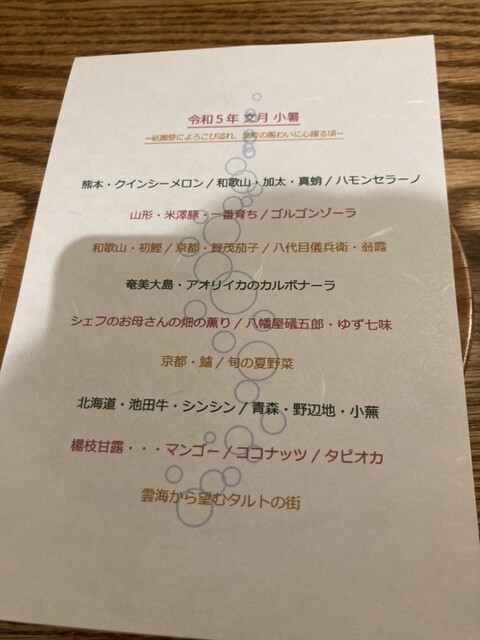 令和5年 文月 小暑
~祇園祭によろこび溢れ、京町の賑わいに心躍る頃~
熊本・クインシーメロン / 和歌山・加太・真蛸 / ハモンセラーノ
山形・米澤豚・一番育ち / ゴルゴンゾーラ
和歌山・初鰹 / 京都・賀茂茄子 / 八代目儀兵衛・翁霞
奄美大島・アオリイカのカルボナーラ
シェフのお母さんの畑の薫り / 八幡屋礒五郎・ゆず七味
京都・鱸 / 旬の夏野菜
北海道・池田牛・シンシン / 青森・野辺地・小蕪
楊枝甘露・・・マンゴー / ココナッツ / タピオカ
雲海から望むタルトの街